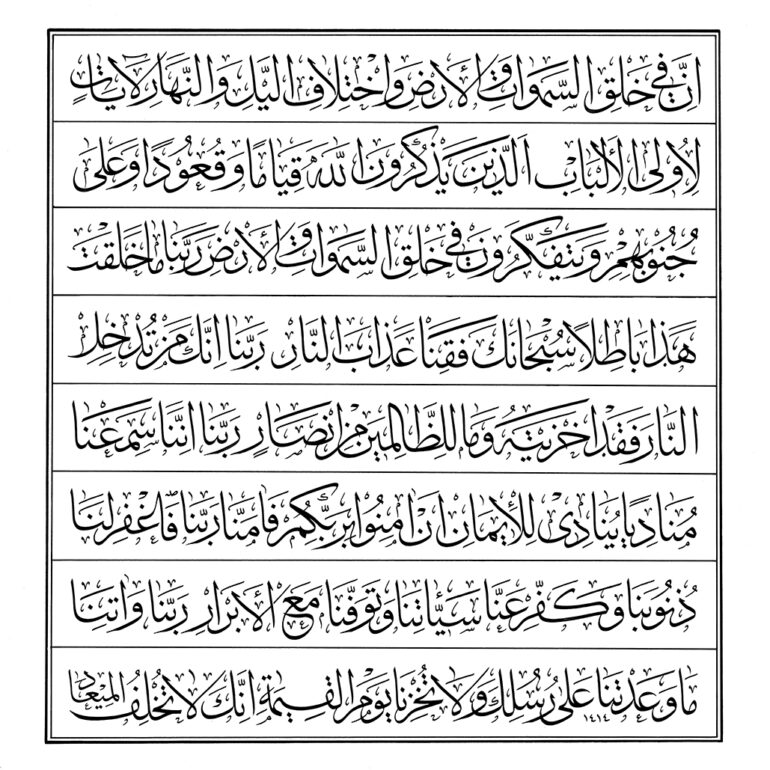 اِنَّ فِي خَلْقِ السَّمٰوَاتِ وَالْأَرْضِ وَاخْتِلَافِ الَّيْلِ وَالنَّهَارِ لَآيَاتٍ
لِاُولِى الْأَلْبَابِ الَّذِينَ يَذْكُرُونَ اللّٰهَ قِيَامًا وَقُعُودًا وَعَلىٰ
جُنُوبِهِمْ وَيَتَفَكَّرُونَ فِي خَلْقِ السَّمٰوَاتِ وَالْأَرْضِ رَبَّنَا مَا خَلَقْتَ
هٰذَا بَاطِلًا سُبْحَانَكَ فَقِنَا عَذَابَ النَّارِ رَبَّنَا اِنَّكَ مَنْ تُدْخِلِ
النَّارَ فَقَدْ اَخْزَيْتَهُ وَمَا لِلظَّالِمِينَ مِنْ اَنْصَارٍ رَبَّنَا اِنَّنَا سَمِعْنَا
مُنَادِيًا يُنَادِى لِلْإِيمَانِ اَنْ اٰمِنُوا بِرَبِّكُمْ فَاٰمَنَّا رَبَّنَا فَاغْفِرْ لَنَا
ذُنُوبَنَا وَكَفِّرْ عَنَّا سَيِّئَاتِنَا وَتَوَفَّنَا مَعَ الْأَبْرَارِ رَبَّنَا وَاٰتِنَا
مَا وَعَدْتَنَا عَلىٰ رُسُلِكَ وَلَا تُخْزِنَا يَوْمَ الْقِيٰمَةِ اِنَّكَ لَا تُخْلِفُ الْمِيعَادَ ١٤١٤